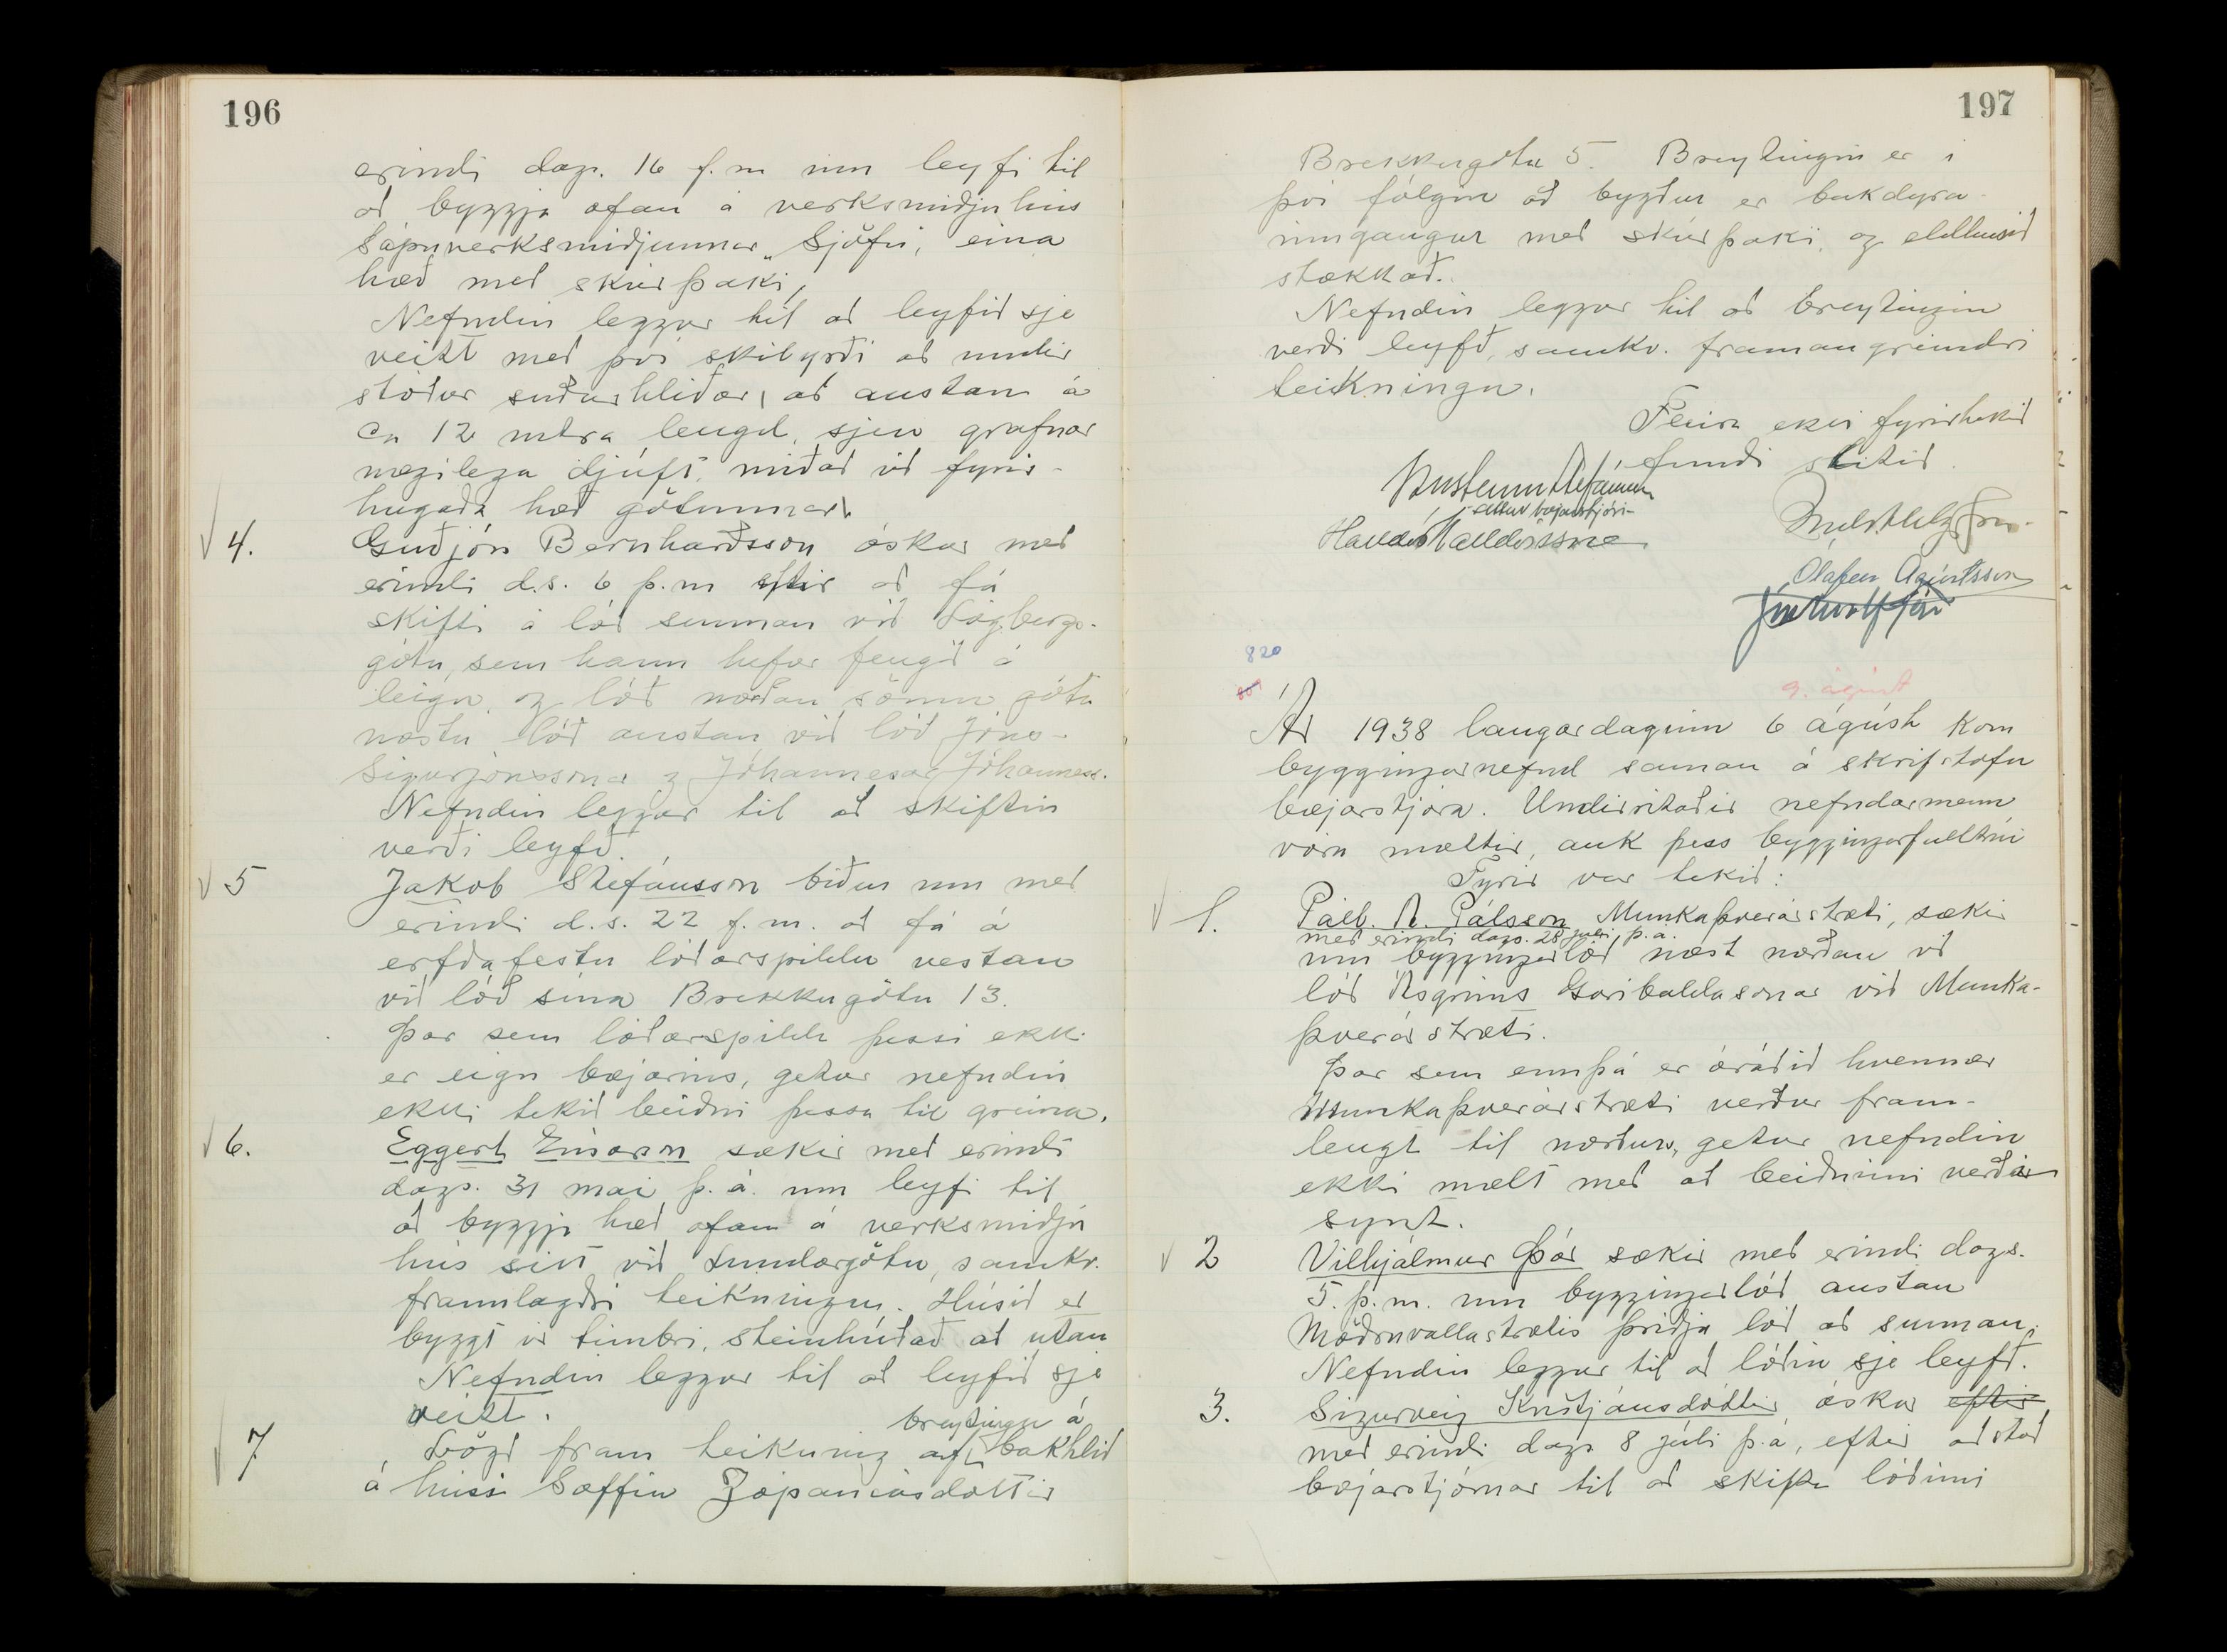 196
erindi dags. 16 f.m um leyfi til
að byggja ofan á verksmiðjuhús
Sápuverksmiðjunnar „Sjöfn, eina
hæð með skúrþaki,
Nefndin leggur til að leyfið sje
veitt með því skilyrði að undir
stöður suðurhliðar, að austan á
ca 12 metra lengd, sjeu grafnar
nægilega djúft, miðað við fyrir-
hugaða hæð götunnar.
4. Guðjón Bernharðsson óskar með
erindi d.s. 6 þ.m eftir að fá
skifti á lóð sunnan við Lögbergs-
götu, sem hann hefur fengið á
leigu, og lóð norðan sömu götu
næstu lóð austan við lóð Jóns-
Sigurjónssonar og Jóhannesar Jóhanness.
Nefndin leggur til að skiftin
verði leyfð.
5 Jakob Stefánsson biður um með
erindi d.s. 22 f.m. að fá á
erfðafestu lóðarspildu vestan
við lóð sína Brekkugötu 13.
Þar sem lóðarspilda þessi ekki
er eign bæjarins, getur nefndin
ekki tekið beiðni þessa til greina.
6. Eggert Einarsson sækir með erindi
dags. 31 maí þ.á. um leyfi til
að byggja hæð ofan á verksmiðju
hús sitt við Lundargötu, samkv.
framlagðri teikningu. Húsið er
byggt úr timbri, steinhúðað að utan
Nefndin leggur til að leyfið sje
veitt.
breytingu á
7 Lögð fram teikning af bakhlið
á húsi Soffíu Zópaníasdóttir
197
Brekkugötu 5. Breytingin er í
því fólgin að byggður er bakdyra-
inngangur með skúrþaki, og eldhúsið
stækkað.
Nefndin leggur til að breytingin
verði leyfð, samkv. framangreindri
teikningu.
Fleira ekki fyrirtekið
fundi slitið.
Steinn Steinsen
settur bæjarstjóri
Halldór Halldórsson
Ólafur Ágústsson
820
9. ágúst
Ár 1938 laugardaginn 6 ágúst kom
bygginganefnd saman á skrifstofu
bæjarstjóra. Undirritaðir nefndarmenn
voru mættir, auk þess byggingarfulltrúi
Fyrir var tekið:
1. Páll A. Pálsson Munkaþverárstræti, sækir
með erindi dags. 28 júlí þ.á.
um byggingarlóð næst norðan við
lóð Ásgríms Garibaldasonar við Munka-
þverárstræti.
Þar sem ennþá er óráðið hvenær
Munkaþverárstræti verður fram-
lengt til norðurs, getur nefndin
ekki mælt með að beiðninni verði
synt.
2 Vilhjálmur Þór sækir með erindi dags.
5. þ.m. um byggingarlóð austan
Möðruvallastrætis þriðju lóð að sunnan.
Nefndin leggur til að lóðin sje leyfð.
3. Sigurveig Kristjánsdóttir óskar eftir
með erindi dags 8 júlí þ.á, eftir aðstoð
bæjarstjórnar til að skifta lóðinni